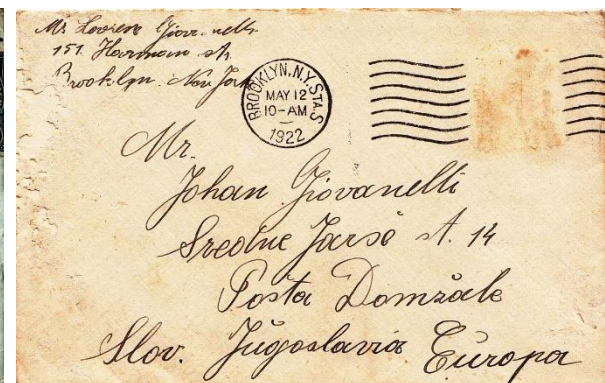 Mr Lovrenc Giovanelli
151. Harman str.
Brooklyn. New York
BROOKLYN, N.Y. STA. S
MAY 12
10-AM
1922
Mr.
Johan Giovanelli
Sredne Jarse št. 14
Posta Domžale
Slov. Jugoslavia Europa